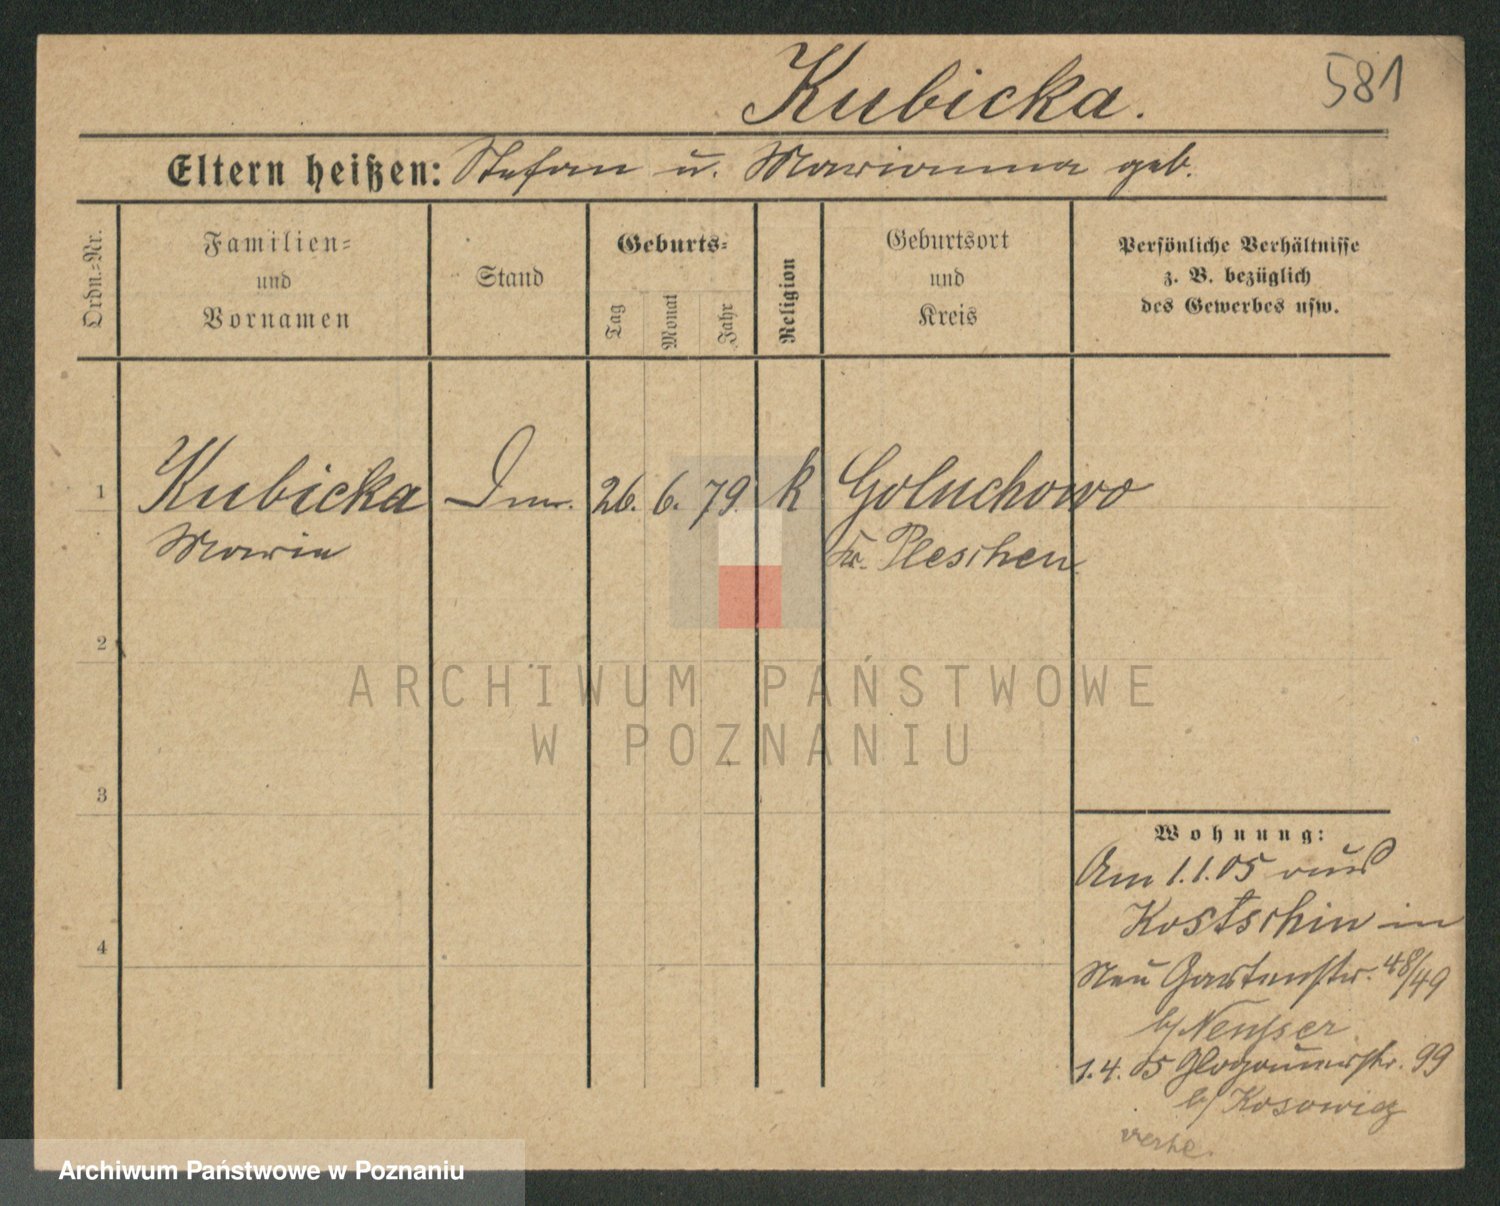 Kubicka.
581
Eltern heißen: Stefan u. Marianna geb.
Ordn.-Nr.
Familien-
und
Vornamen
Stand
Geburts-
Tag
Monat
Jahr
Religion
Geburtsort
und
Kreis
Persönliche Verhältnisse
z. B. bezüglich
des Gewerbes usw.
1 Kubicka 26. 6. 79. k Goluchowo
Maria Kr. Pleschen
2
3
4
Wohnung:
Am 1.1.05 aus
Kostschin in
Neu Gartenstr. 48/49
b/
1.4.05 Glogauerstr. 99
b/ Kosowicz
ARCHIWUM PAŃSTWOWE
W POZNANIU
Archiwum Państwowe w Poznaniu